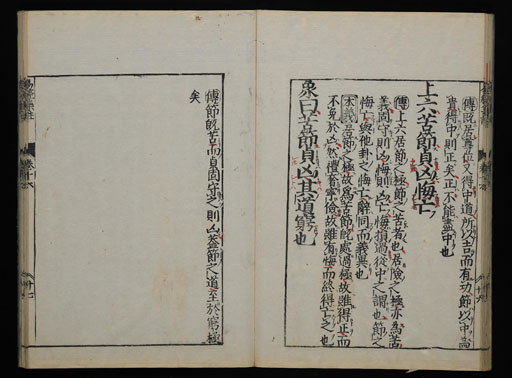 傳既居尊位又得中道所以吉而有功節以中爲
貴得中則正矣正不能盡中也
上六苦節貞凶悔亡
傳上六居節之極節之苦者也居險之極亦爲苦
義固守則凶悔則凶亡悔損過從中之謂也節之
悔亡與他卦之悔亡辭同而義異也
本義居節之極故爲苦節既處過極故雖得正而
不免於凶然禮奢寧儉故雖有悔而終得亡之也
象曰苦節貞凶其道窮也
傳節既苦而貞固守之則凶蓋節之道至於窮極
矣